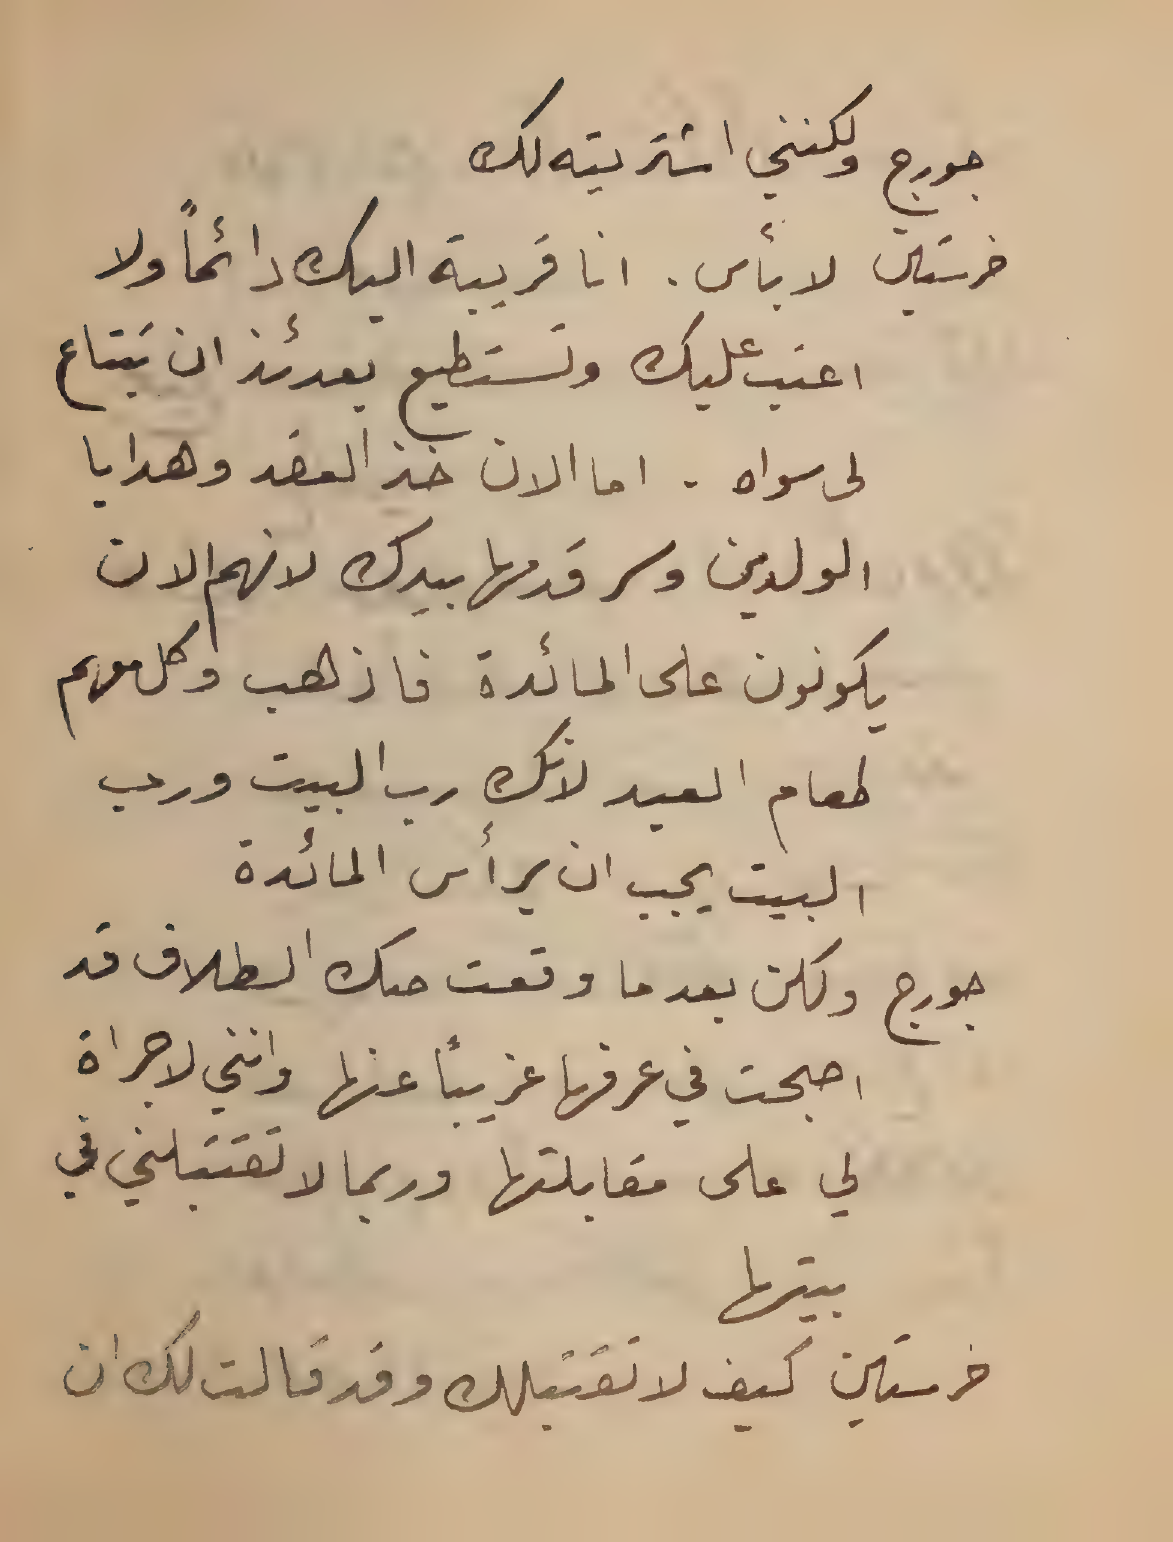 جورج ولكنني اشتريته لك
خرستين لا بأس . انا قريبة اليك دائماً ولا
اعتب عليك وتستطيع بعدئذ ان تبتاع
لي سواه . اما الان خذ العقد وهدايا
الولدين وسر قدمها بيدك لانهم الان
يكونون على المائدة فاذهب وكل معهم
طعام العيد لانك رب البيت ورب
البيت يجب ان يرأس المائدة
جورج ولكن بعدما وقعت صك الطلاق قد
اصبحت في عرفها غريباً عنها وانني لا جراة
لي على مقابلتها وربما لا تقتبلني في
بيتها
خرستين كيف لا تقتبلك وقد قالت لك ان